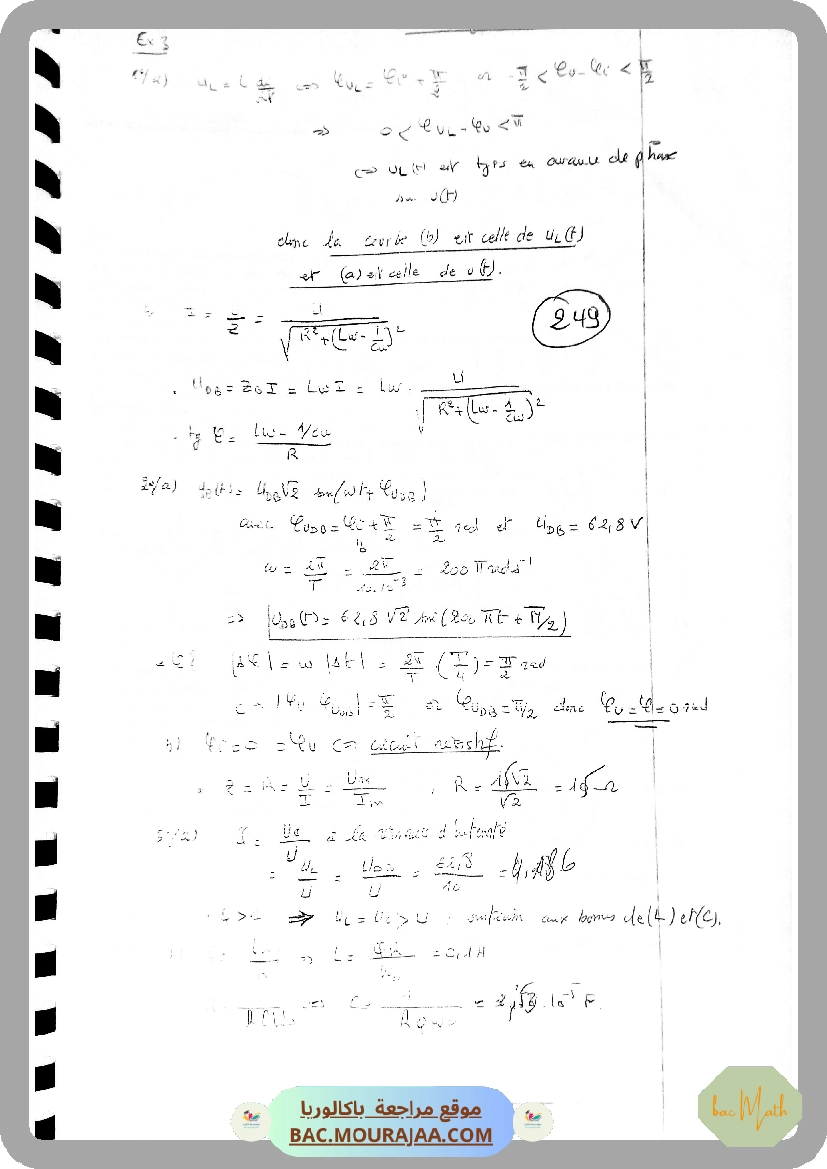 Ex 3
1°/a) u_L = L di/dt ⇔ φ_UL = φi + π/2 or -π/2 < φu - φi < π/2
⇒ 0 < φ_UL - φu < π
⇔ uL(t) est tjrs en avance de phase
sur u(t)
donc la courbe (b) est celle de uL(t)
et (a) est celle de u(t).
I = U/Z = U/√(R²+(Lω - 1/Cω)²)
249
. U_DB = Z_B I = Lω I = Lω · U/√(R²+(Lω - 1/Cω)²)
. tg φ = (Lω - 1/Cω)/R
2°/a) u_DB(t) = U_DB √2 sin(ωt + φ_UDB)
avec φ_UDB = φi + π/2 = π/2 rad et U_DB = 62,8 V
ω = 2π/T = 2π/10.10⁻³ = 200 π rad s⁻¹
⇒ u_DB(t) = 62,8 √2 sin(200 πt + π/2)
φ? |Δφ| = ω |Δt| = 2π/T · (T/4) = π/2 rad
|φu - φ_UDB| = π/2 or φ_UDB = π/2 donc φu = φi = 0 rad
b) φi = 0 = φu ⇔ circuit résistif.
Z = R = U/I = Um/Im , R = √2/√2 = Ω
Uc/U à la résonance d'intensité
= UL/U = U_DB/U = 62,8/10 =
⇒ UL = Uc > U : aux bornes de (L) et (C).
⇒ L = = 0,1 H
. 10⁻⁵ F.
موقع مراجعة باكالوريا
BAC.MOURAJAA.COM
bac Math